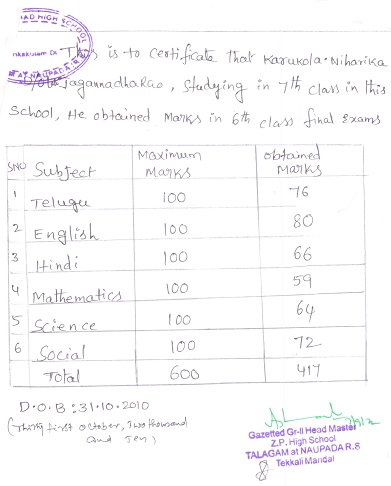 IAD HIGH SCHOOL
nkakulam Dt
AT NAUPADA.R.S
This is to Certificate That Karukola. Niharika
D/o Jagannadha Rao, Studying in 7th class in this
School, He obtained Marks in 6th class final Exams
SNO Subject Maximum Marks obtained Marks
1 Telugu 100 76
2 English 100 80
3 Hindi 100 66
4 Mathematics 100 59
5 Science 100 64
6 Social 100 72
Total 600 417
D.O.B : 31.10.2010
(Thirty first october, Two thousand
and Ten)
Gazetted Gr-II Head Master
Z.P. High School
TALAGAM at NAUPADA R.S
Tekkali Mandal